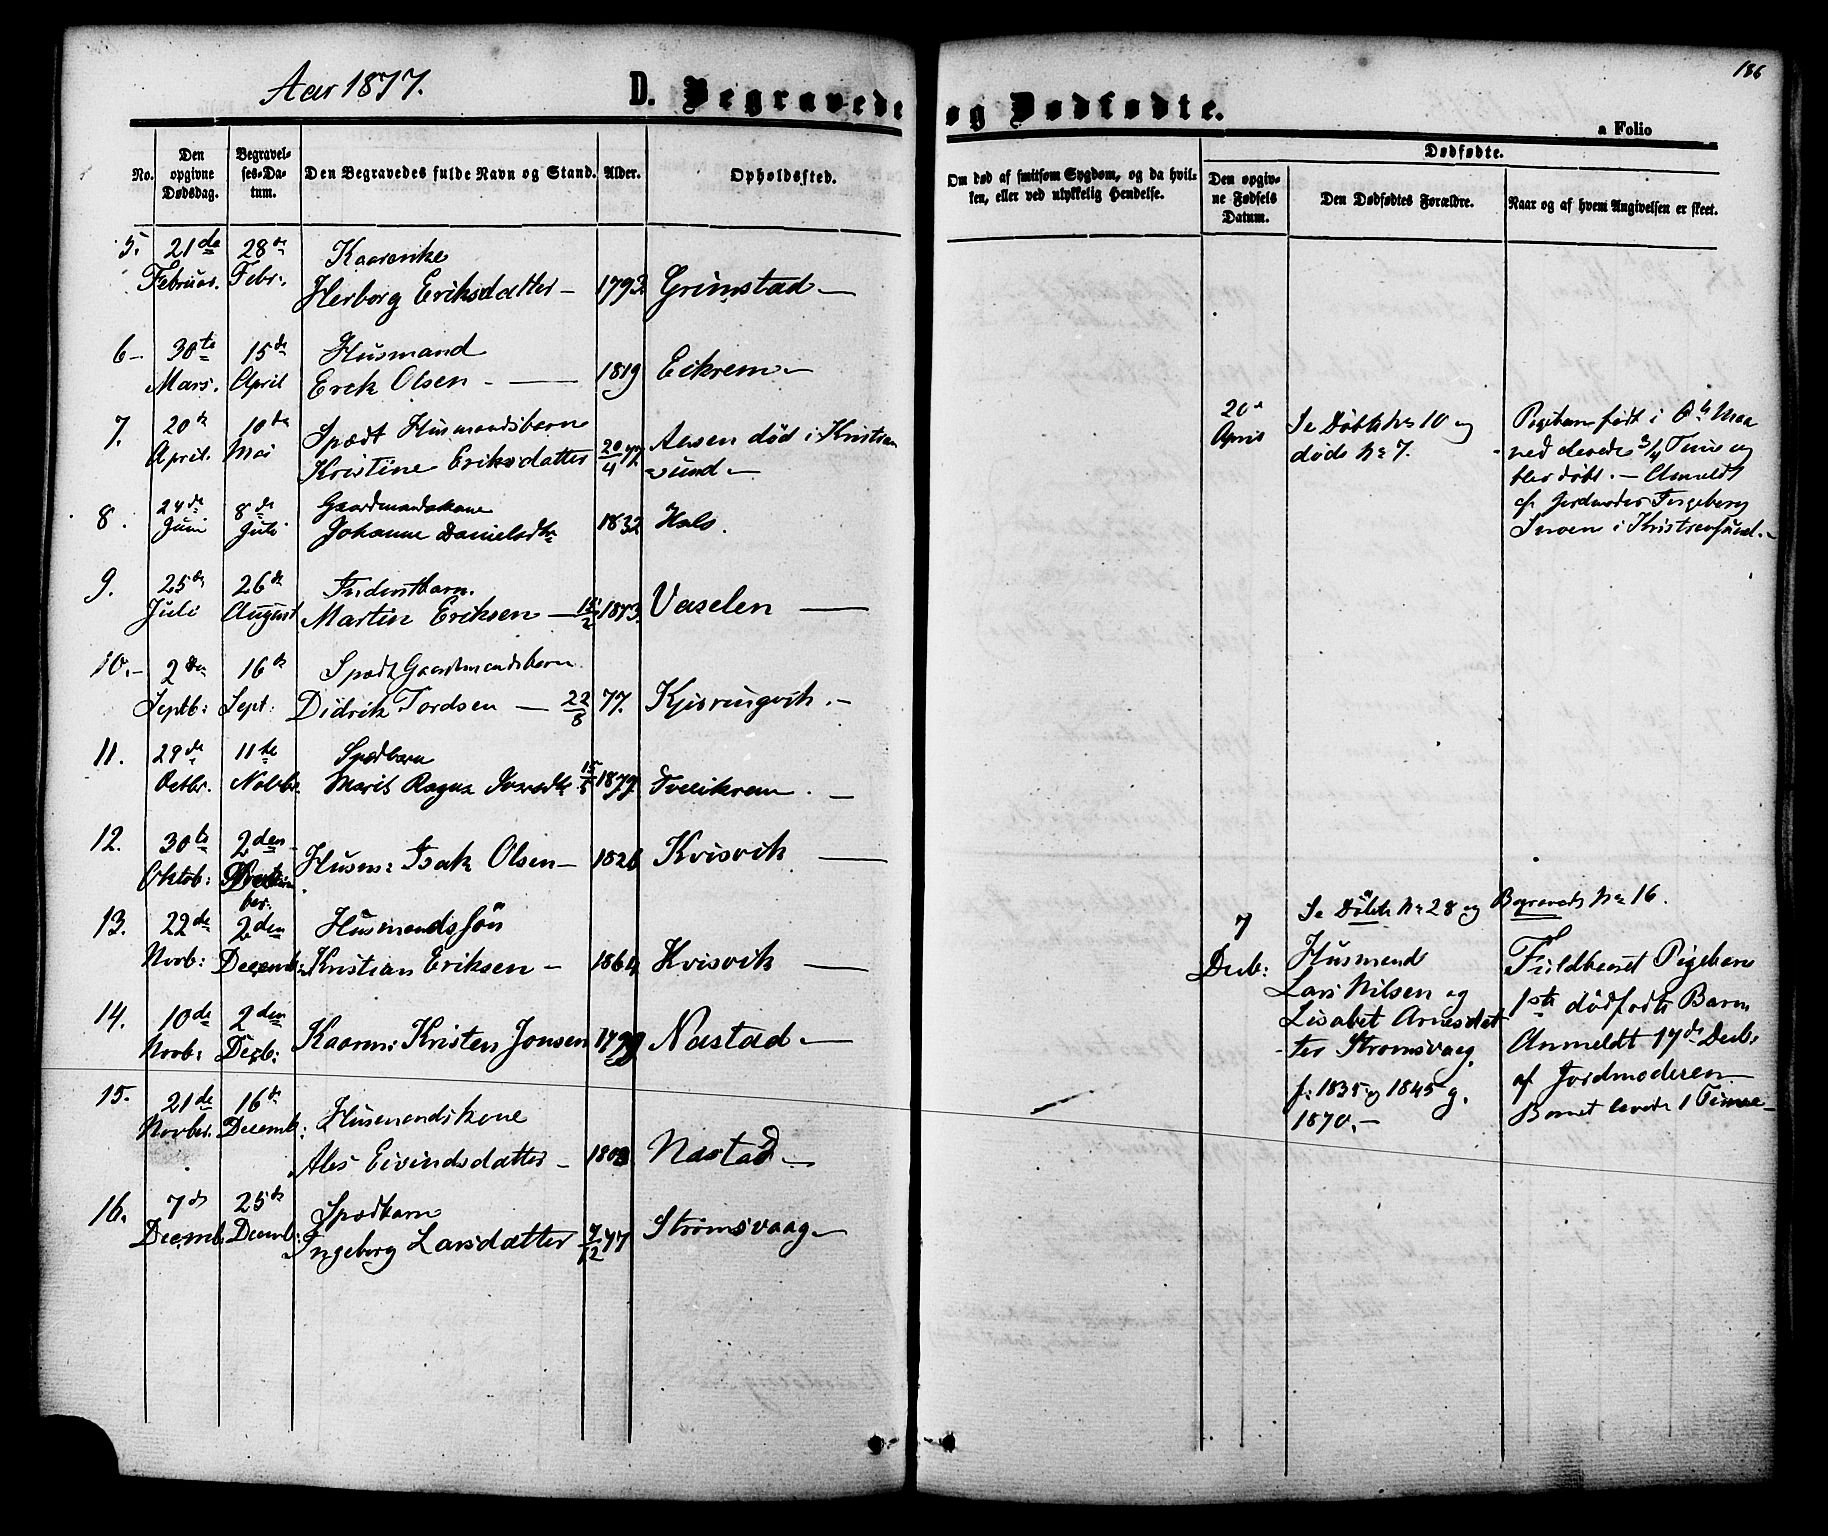 186
Aar 1877.
D. Begravede og Dødfødte.
a Folio
No.
Den opgivne Dødsdag.
Begravel-
ses-Da-
tum.
Den Begravedes fulde Navn og Stand.
Alder.
Opholdssted.
Om død af smitsom Sygdom, og da hvil-
ken, eller ved ulykkelig Hendelse.
Dødfødte.
Den opgiv-
ne Fødsels
Datum.
Den Dødfødtes Forældre.
Naar og af hvem Angivelsen er skeet.
5. 21de 28de Kaarenke
Februar. Febr. Herborg Eriksdatter 1793 Grimstad
6 30te 15de Husmand
Mars. April Erek Olsen 1819 Eikrem
7. 20de 10de Spædt Husmandsbarn
April. Mai Kristine Eriksdatter 20/4 77. Aasen død i Kristian
sund
20de
April
Se Døbte No 10 og
døde No 7.
Pigebarn født i
ned levede 3/4 Time og
blev døbt. Anmeldt
af Jordmoder Ingeborg
i Kristiansund.
8. 24de 8de Gaardmandskone
Juni Juli Johanne Danielsdtr 1832 Hals.
9. 25de 26de
Juli August Martin Eriksen 15/2 1873. Vaselen
10. 2den 16de Spædt Gaardmandsbarn
Septb: Sept: Didrik Tordsen 22/8 77. Kjøringvik.
11. 29de 11te Spædbarn
Octbr. Novbr. Marit Ragna 1877. Tveikrem.
12. 30te 2den
Oktob: Decem
ber. Husm: Isak Olsen 1826 Kvisvik
13. 22de 2den Husmandssøn
Novb: Decemb: Kristian Eriksen 1864 Kvisvik
14. 10de 2den
Novb: Decb: Kaarm: Kristen Jonsen 1799 Nastad
15. 21de 16de Husmandskone
Novber. Decemb: Ales Eivindsdatter 1803 Nastad
16. 7de 25de Spædbarn
Decemb. Decemb: Ingeborg Larsdatter 7/12 77 Strømsvaag
Se Døbte No 28 og Begravede No 16.
7
Decb:
Husmand
Lars Nilsen og
Lisabet Arnesdat
ter Strømsvaag.
f: 1835 og 1845 g.
1870.
Fuldbaaret Pigebarn
1ste dødfødte Barn
Anmeldt 17de Decb:
af Jordmoderen
Barnet levede 1 Time